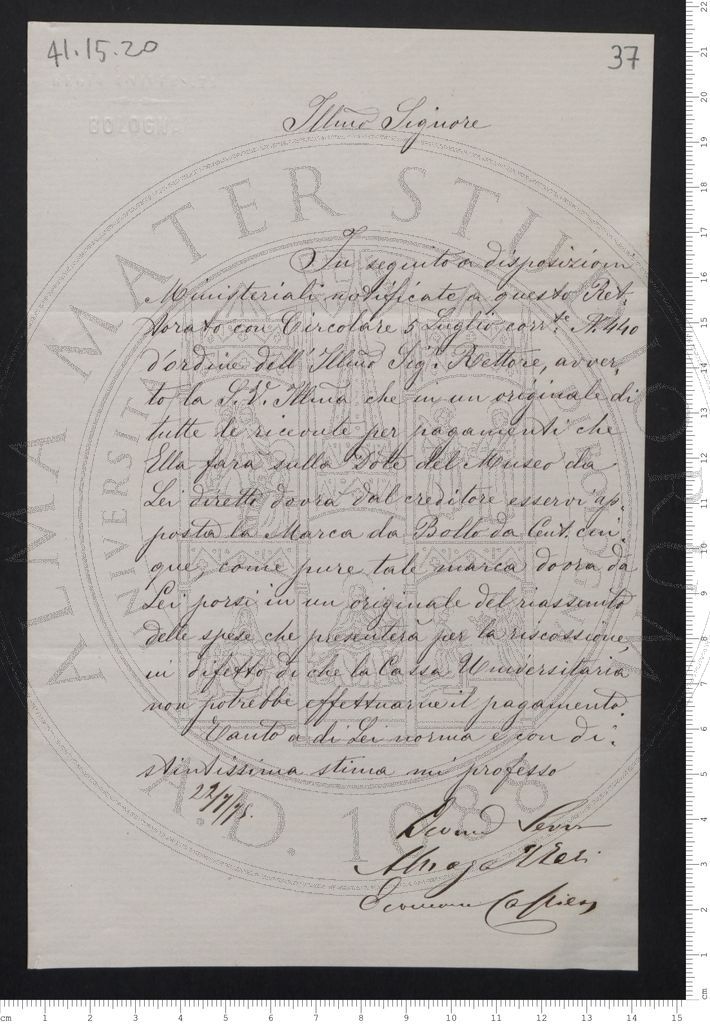 41.15.20
37
BOLOGNA
Illmo Signore
In seguito a disposizioni
Ministeriali notificate a questo Ret-
torato con Circolare 5 Luglio corrte N. 440
d'ordine dell'Illmo Sigr Rettore, avver-
to la S.V. Illma che in un originale di
tutte le ricevute per pagamenti che
Ella farà sulla Dote del Museo da
Lei diretto dovrà dal creditore esservi ap-
posta la Marca da Bollo da Cent. cin-
que, come pure tale marca dovrà da
Lei porsi in un originale del riassunto
delle spese che presenterà per la riscossione,
in difetto di che la Cassa Universitaria
non potrebbe effettuarne il pagamento.
Tanto a di Lei norma e con di-
stintissima stima mi professo
Economo Cassiere
ALMA MATER STUDIORUM
UNIVERSITÀ
A.D. 1088